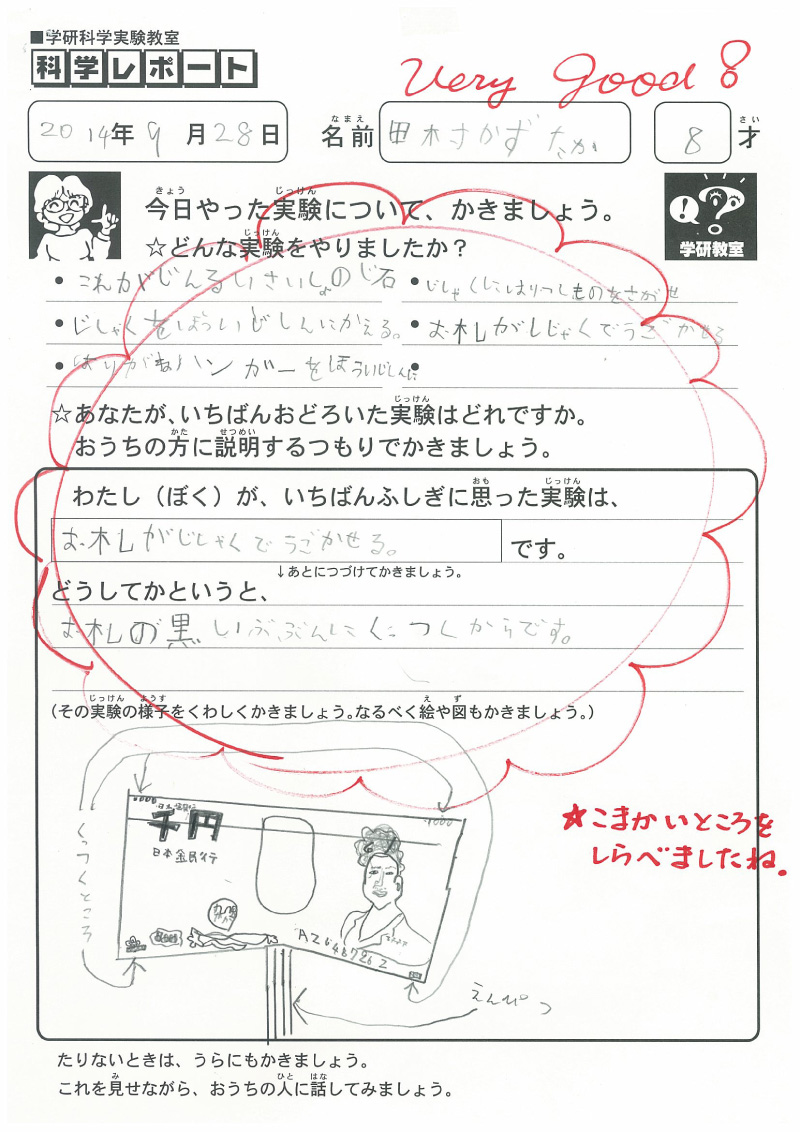 ■学研科学実験教室
科学レポート
Very Good!
2014年9月28日
名前 なまえ 田村かずたか
8才 さい
今日やった実験について、かきましょう。 きょう じっけん
☆どんな実験をやりましたか? じっけん
学研教室
・これがじんるいさいしょのじ石
・じしゃくにはりつくものをさがせ
・じしゃくをほういじしんにかえる。
・お札がじしゃくでうごかせる
・はりがねハンガーをほういじしんに
・
☆あなたが、いちばんおどろいた実験はどれですか。 じっけん
おうちの方に説明するつもりでかきましょう。 かた せつめい
わたし(ぼく)が、いちばんふしぎに思った実験は、 おも じっけん
お札がじしゃくでうごかせる。
です。
↓あとにつづけてかきましょう。
どうしてかというと、
お札の黒いぶぶんにくっつくからです。
(その実験の様子をくわしくかきましょう。なるべく絵や図もかきましょう。) じっけん ようす え ず
くっつくところ
千円
日本
1000
AZ648726Z
えんぴつ
★こまかいところを
しらべましたね。
たりないときは、うらにもかきましょう。
これを見せながら、おうちの人に話してみましょう。 み ひと はな